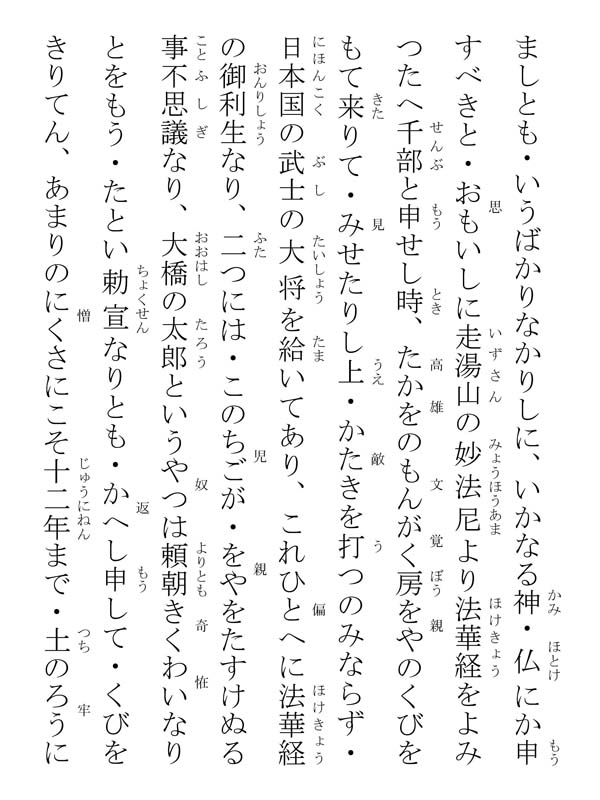 ましとも・いうばかりなかりしに、いかなる神・仏にか申
すべきと・おもいしに走湯山の妙法尼より法華経をよみ
つたへ千部と申せし時、たかをのもんがく房をやのくびを
もて来りて・みせたりし上・かたきを打つのみならず・
日本国の武士の大将を給いてあり、これひとへに法華経
の御利生なり、二つには・このちごが・をやをたすけぬる
事不思議なり、大橋の太郎というやつは頼朝きくわいなり
とをもう・たとい勅宣なりとも・かへし申して・くびを
きりてん、あまりのにくさにこそ十二年まで・土のろうに